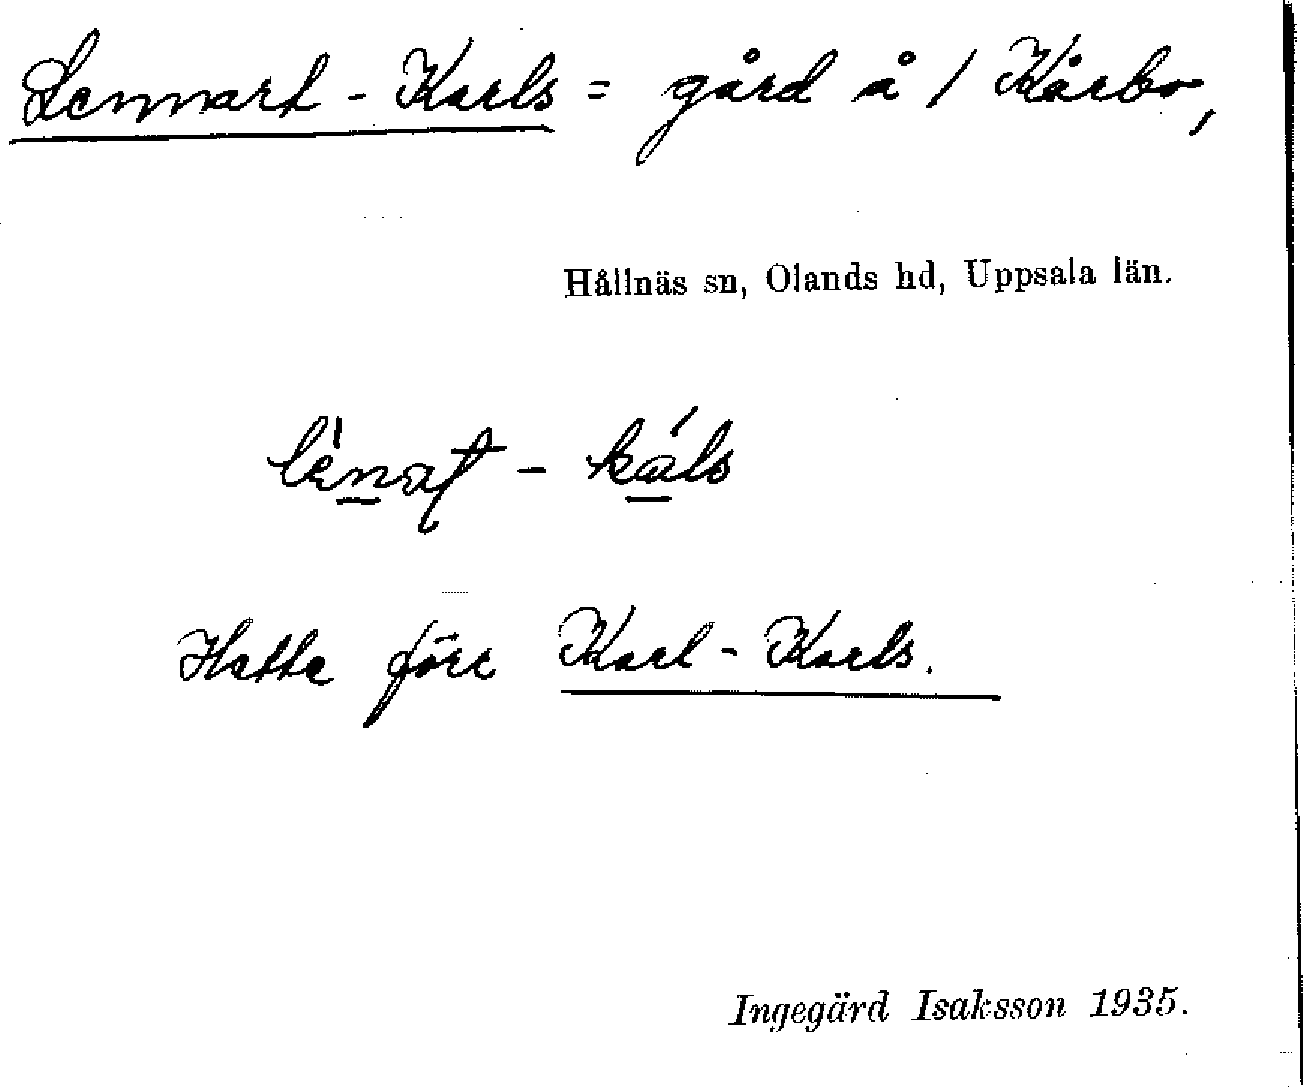 Lennart-Karls = gård å / Kårbo,
Hållnäs sn, Olands hd, Uppsala län.
lènat - káls
Hette förr Karl-Karls.
Ingegärd Isaksson 1935.